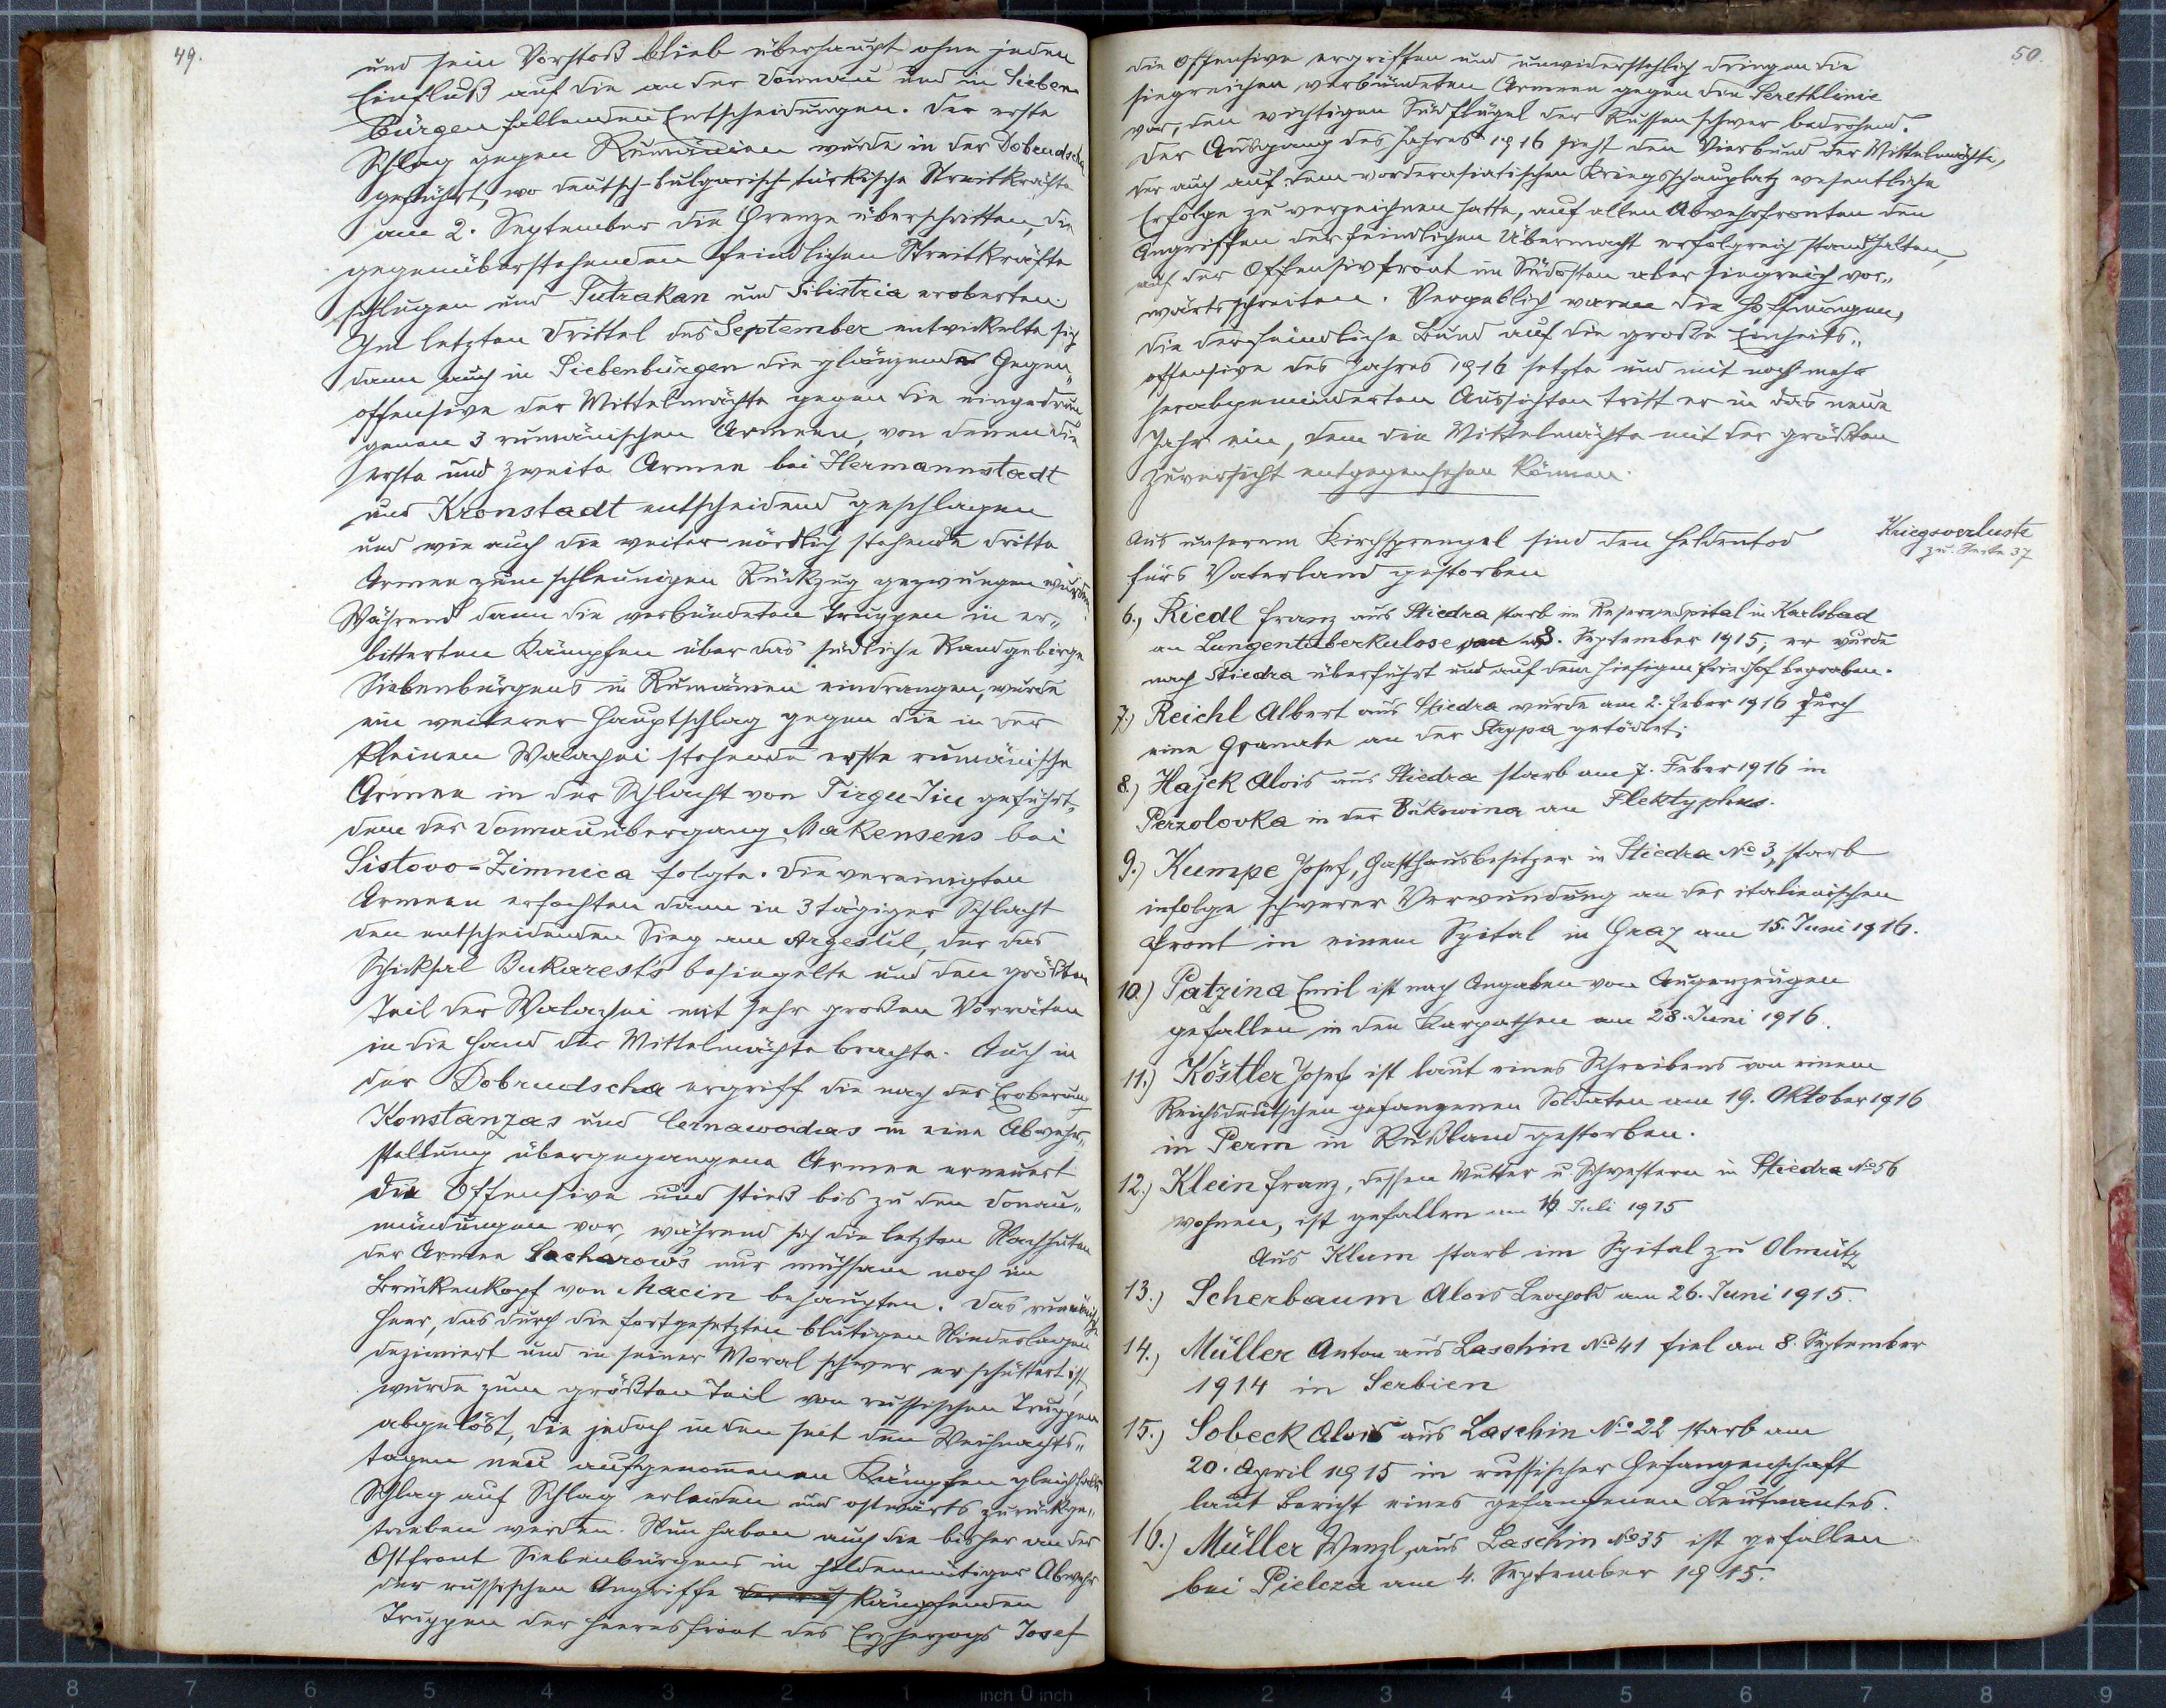 49.
und sein Vorstoß blieb überhaupt ohne jeden
Einfluß auf die an der Donau und in Sieben„
bürgen fallenden Entscheidungen. Der erste
Schlag gegen Rumänien wurde in der Dobrudscha
geführt, wo deutsch-bulgarisch-türkische Streitkräfte
am 2. September die Grenze überschritten, die
gegenüberstehenden feindlichen Streitkräfte
schlugen und Tutrakan und Silistria eroberten.
Im letzten Drittel des September entwickelte sich
dann auch in Siebenbürgen die glänzende Gegen„
offensive der Mittelmächte gegen die eingedrun„
genen 3 rumänischen Armeen, von denen die
erste und zweite Armee bei Hermannstadt
und Kronstadt entscheidend geschlagen
und wie auch die weiter nördlich stehende dritte
Armee zum schleunigen Rückzug gezwungen wurden.
Während dann die verbündeten Truppen in er„
bitterten Kämpfen über das südliche Randgebirge
Siebenbürgens in Rumänien eindrangen, wurde
ein weiterer Hauptschlag gegen die in der
kleinen Walachei stehende erste rumänische
Armee in der Schlacht von Tirgu-Jiu geführt,
dem der Donauübergang Makensens bei
Sistovo-Zimnica folgte. Die vereinigten
Armeen erfochten dann in 3 tägiger Schlacht
den entscheidenden Sieg am Argesul, der das
Schicksal Bukarest's besiegelte und den größten
Teil der Walachei mit sehr großen Vorräten
in die Hand der Mittelmächte brachte. Auch in
der Dobrudscha ergriff die nach der Eroberung
Konstanzas und Cernawodas in eine Abwehr„
stellung übergegangene Armee erneuert
die Offensive und stieß bis zu den Donau„
mündungen vor, während sich die letzten Nachhuten
der Armee Sacharow's nur mühsam noch im
Brückenkopf von Macin behaupten. Das rumänische
Heer, das durch die fortgesetzten blutigen Niederlagen
dezimiert und in seiner Moral schwer erschüttert ist,
wurde zum größten Teil von russischen Truppen
abgelöst, die jedoch in den seit den Weihnachts„
tagen neu aufgenommenen Kämpfen gleichfalls
Schlag auf Schlag erleiden und ostwärts zurückge„
trieben werden. Nun haben auch die bisher an der
Ostfront Siebenbürgens in heldenmütiger Abwehr
der russischen Angriffe kämpfenden
Truppen der Heeresfront des Erzherzogs Josef
50.
die Offensive ergriffen und unwiderstehlich dringen die
siegreichen verbündeten Armeen gegen die Serethlinie
vor, den wichtigen Südflügel der Russen schwer bedrohend.
Der Ausgang des Jahres 1916 sieht den Vierbund der Mittelmächte,
der auch auf dem vorderasiatischen Kriegsschauplatz wesentliche
Erfolge zu verzeichnen hatte, auf allen Abwehrfronten den
Angriffen der feindlichen Übermacht erfolgreich standhalten,
auf der Offensivfront im Südosten aber siegreich vor„
wärtsschreiten. Vergeblich waren die Hoffnungen,
die der feindliche Bund auf die große Einheits„
offensive des Jahres 1916 setzte und mit noch mehr
herabgeminderten Aussichten tritt er in das neue
Jahr ein, dem die Mittelmächte mit der größten
Zuversicht entgegensehen können.
Kriegsverluste
zu Seite 37
Aus unserem Kirchsprengel sind den Heldentod
fürs Vaterland gestorben
6.) Riedl Franz aus Stiedra starb im Reservespital in Karlsbad
an Lungentuberkulose am 8. September 1915, er wurde
nach Stiedra überführt und auf dem hiesigen Friedhof begraben.
7.) Reichl Albert aus Stiedra wurde am 2. Feber 1916 durch
eine Granate an der Strypa getödtet.
8.) Hajek Alois aus Stiedra starb am 7. Feber 1916 in
Perzolovka in der Bukowina an Flektyphus.
9.) Kumpe Josef, Gasthausbesitzer in Stiedra No 3, starb
infolge schwerer Verwundung an der italienischen
Front in einem Spital in Graz am 15. Juni 1916.
10.) Patzina Emil ist nach Angaben von Augenzeugen
gefallen in den Karpathen am 28. Juni 1916.
11.) Köstler Josef ist laut eines Schreibens von einem
Reichsdeutschen gefangenen Soldaten am 19. Oktober 1916
in Perm in Rußland gestorben.
12.) Klein Franz, dessen Mutter u. Schwestern in Stiedra No 56
wohnen, ist gefallen am 16 Juli 1915
Aus Klum starb im Spital zu Olmütz
13.) Scherbaum Alois Leopold am 26. Juni 1915.
14.) Müller Anton aus Laschin No 41 fiel am 8. September
1914 in Serbien
15.) Sobeck Alois aus Laschin No 22 starb am
20. April 1915 in russischer Gefangenschaft
laut Bericht eines gefangenen Leutnantes.
16.) Müller Wenzl aus Laschin No 35 ist gefallen
bei Pielcza am 4. September 1915.
8 7 6 5 4 3 2 1 inch 0 inch 1 2 3 4 5 6 7 8 9